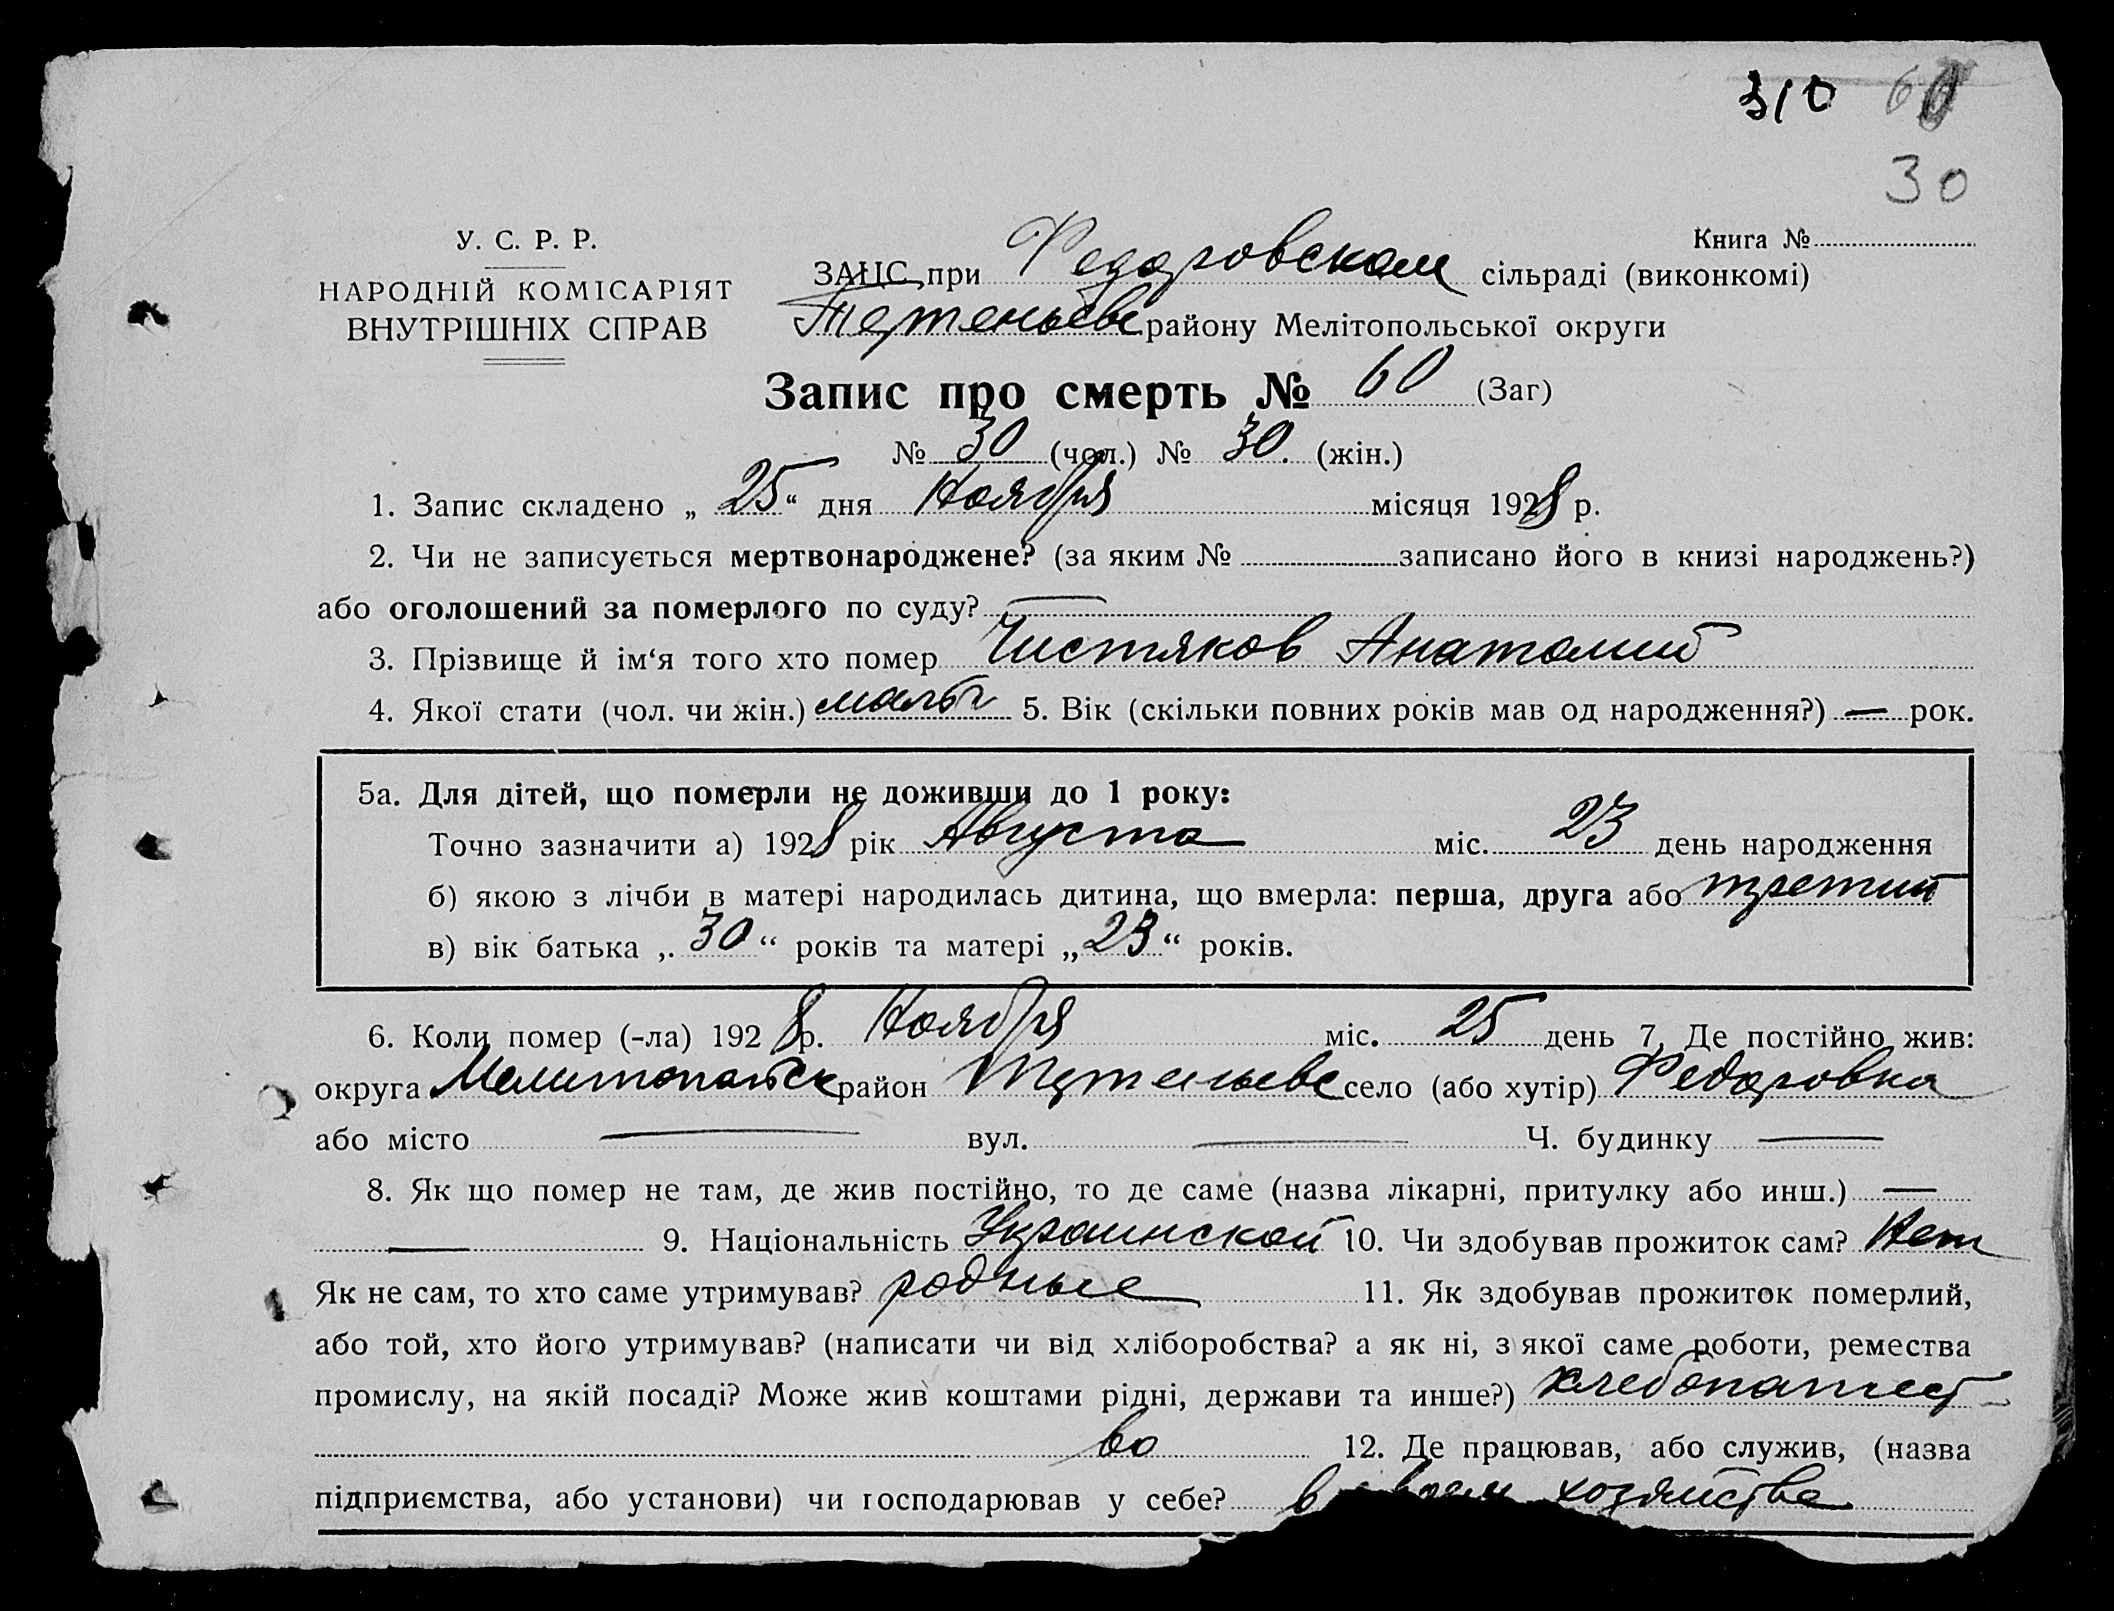 310 60
30
У. С. Р. Р.
НАРОДНІЙ КОМІСАРІЯТ
ВНУТРІШНІХ СПРАВ
Книга №
ЗАЦС при Федоровском сільраді (виконкомі)
району Мелітопольської округи
Запис про смерть № 60 (Заг)
№ 30 (чол.) № 30. (жін.)
1. Запис складено „ 25 “ дня Ноября місяця 1928 р.
2. Чи не записується мертвонароджене? (за яким № записано його в книзі народжень?)
або оголошений за померлого по суду? —
3. Прізвище й ім‘я того хто помер Чистяков Анатолий
4. Якої стати (чол. чи жін.) 5. Вік (скільки повних років мав од народження?) — рок.
5а. Для дітей, що померли не доживши до 1 року:
Точно зазначити а) 1928 рік Августа міс. 23 день народження
б) якою з лічби в матері народилась дитина, що вмерла: перша, друга або третий
в) вік батька „ 30 “ років та матері „ 23 “ років.
6. Коли помер (-ла) 1928 р. Ноября міс. 25 день 7. Де постійно жив:
округа Мелитопольск район село (або хутір) Федоровка
або місто — вул. — Ч. будинку —
8. Як що помер не там, де жив постійно, то де саме (назва лікарні, притулку або инш.) —
— 9. Національність Украинской 10. Чи здобував прожиток сам? Нет
Як не сам, то хто саме утримував? родные 11. Як здобував прожиток померлий,
або той, хто його утримував? (написати чи від хліборобства? а як ні, з якої саме роботи, ремества
промислу, на якій посаді? Може жив коштами рідні, держави та инше?) хлебопашест-
во 12. Де працював, або служив, (назва
підприємства, або установи) чи господарював у себе? в своем хозяйстве